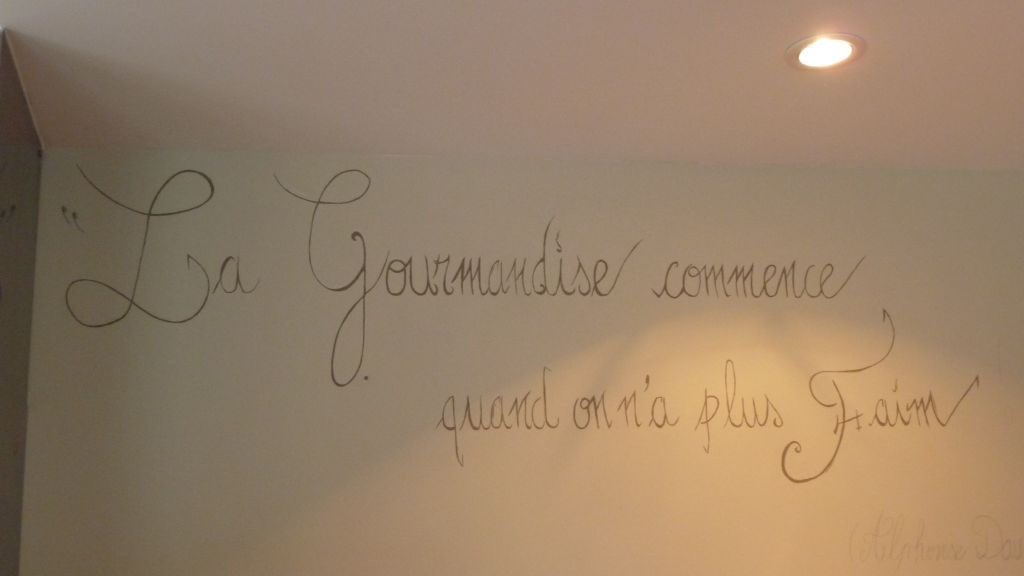 "La Gourmandise commence
quand on n'a plus Faim
(Alphonse Dau